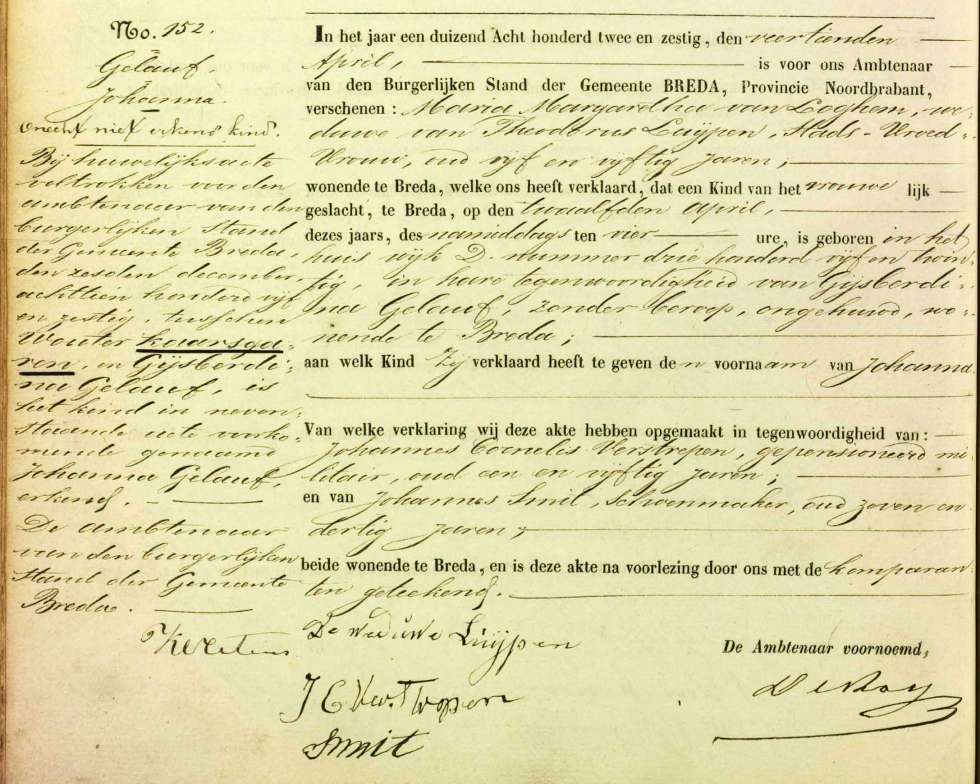 No. 152.
Gelauf.
Johanna.
onecht niet erkend kind.
Bij huwelijksacte
voltrokken voor den
ambtenaar van den
burgerlijken stand
der Gemeente Breda,
den zesden december
achttien honderd vijf
en zestig, tusschen
Wouter Kaarsga-
ren, en Gijsberdi-
na Gelauf, is
het kind in neven-
staande acte voorko-
mende genaamd
Johanna Gelauf,
erkend.
De ambtenaar
van den burgerlijken
stand der Gemeente
Breda.
In het jaar een duizend Acht honderd twee en zestig, den veertienden
April, is voor ons Ambtenaar
van den Burgerlijken Stand der Gemeente BREDA, Provincie Noordbrabant,
verschenen: Maria Margaretha van Loghem, we-
duwe van Theodorus Luijpen, Stads-Vroed-
vrouw, oud vijf en vijftig jaren;
wonende te Breda, welke ons heeft verklaard, dat een Kind van het vrouwelijk
geslacht, te Breda, op den twaalfden April,
dezes jaars, des namiddags ten vier ure, is geboren in het
huis wijk D. nummer drie honderd vijf en twin-
tig, in hare tegenwoordigheid van Gijsberdi-
na Gelauf, zonder beroep, ongehuwd, wo-
nende te Breda;
aan welk Kind Zij verklaard heeft te geven den voornaam van Johanna
Van welke verklaring wij deze akte hebben opgemaakt in tegenwoordigheid van:
Johannes Cornelis Verstrepen, gepensioneerd mi-
litair, oud een en vijftig jaren;
en van Johannes Smit, schoenmaker, oud zeven en
dertig jaren;
beide wonende te Breda, en is deze akte na voorlezing door ons met de komparan-
ten geteekend.
De weduwe Luijpen
De Ambtenaar voornoemd,
J C Verstrepen
Smit